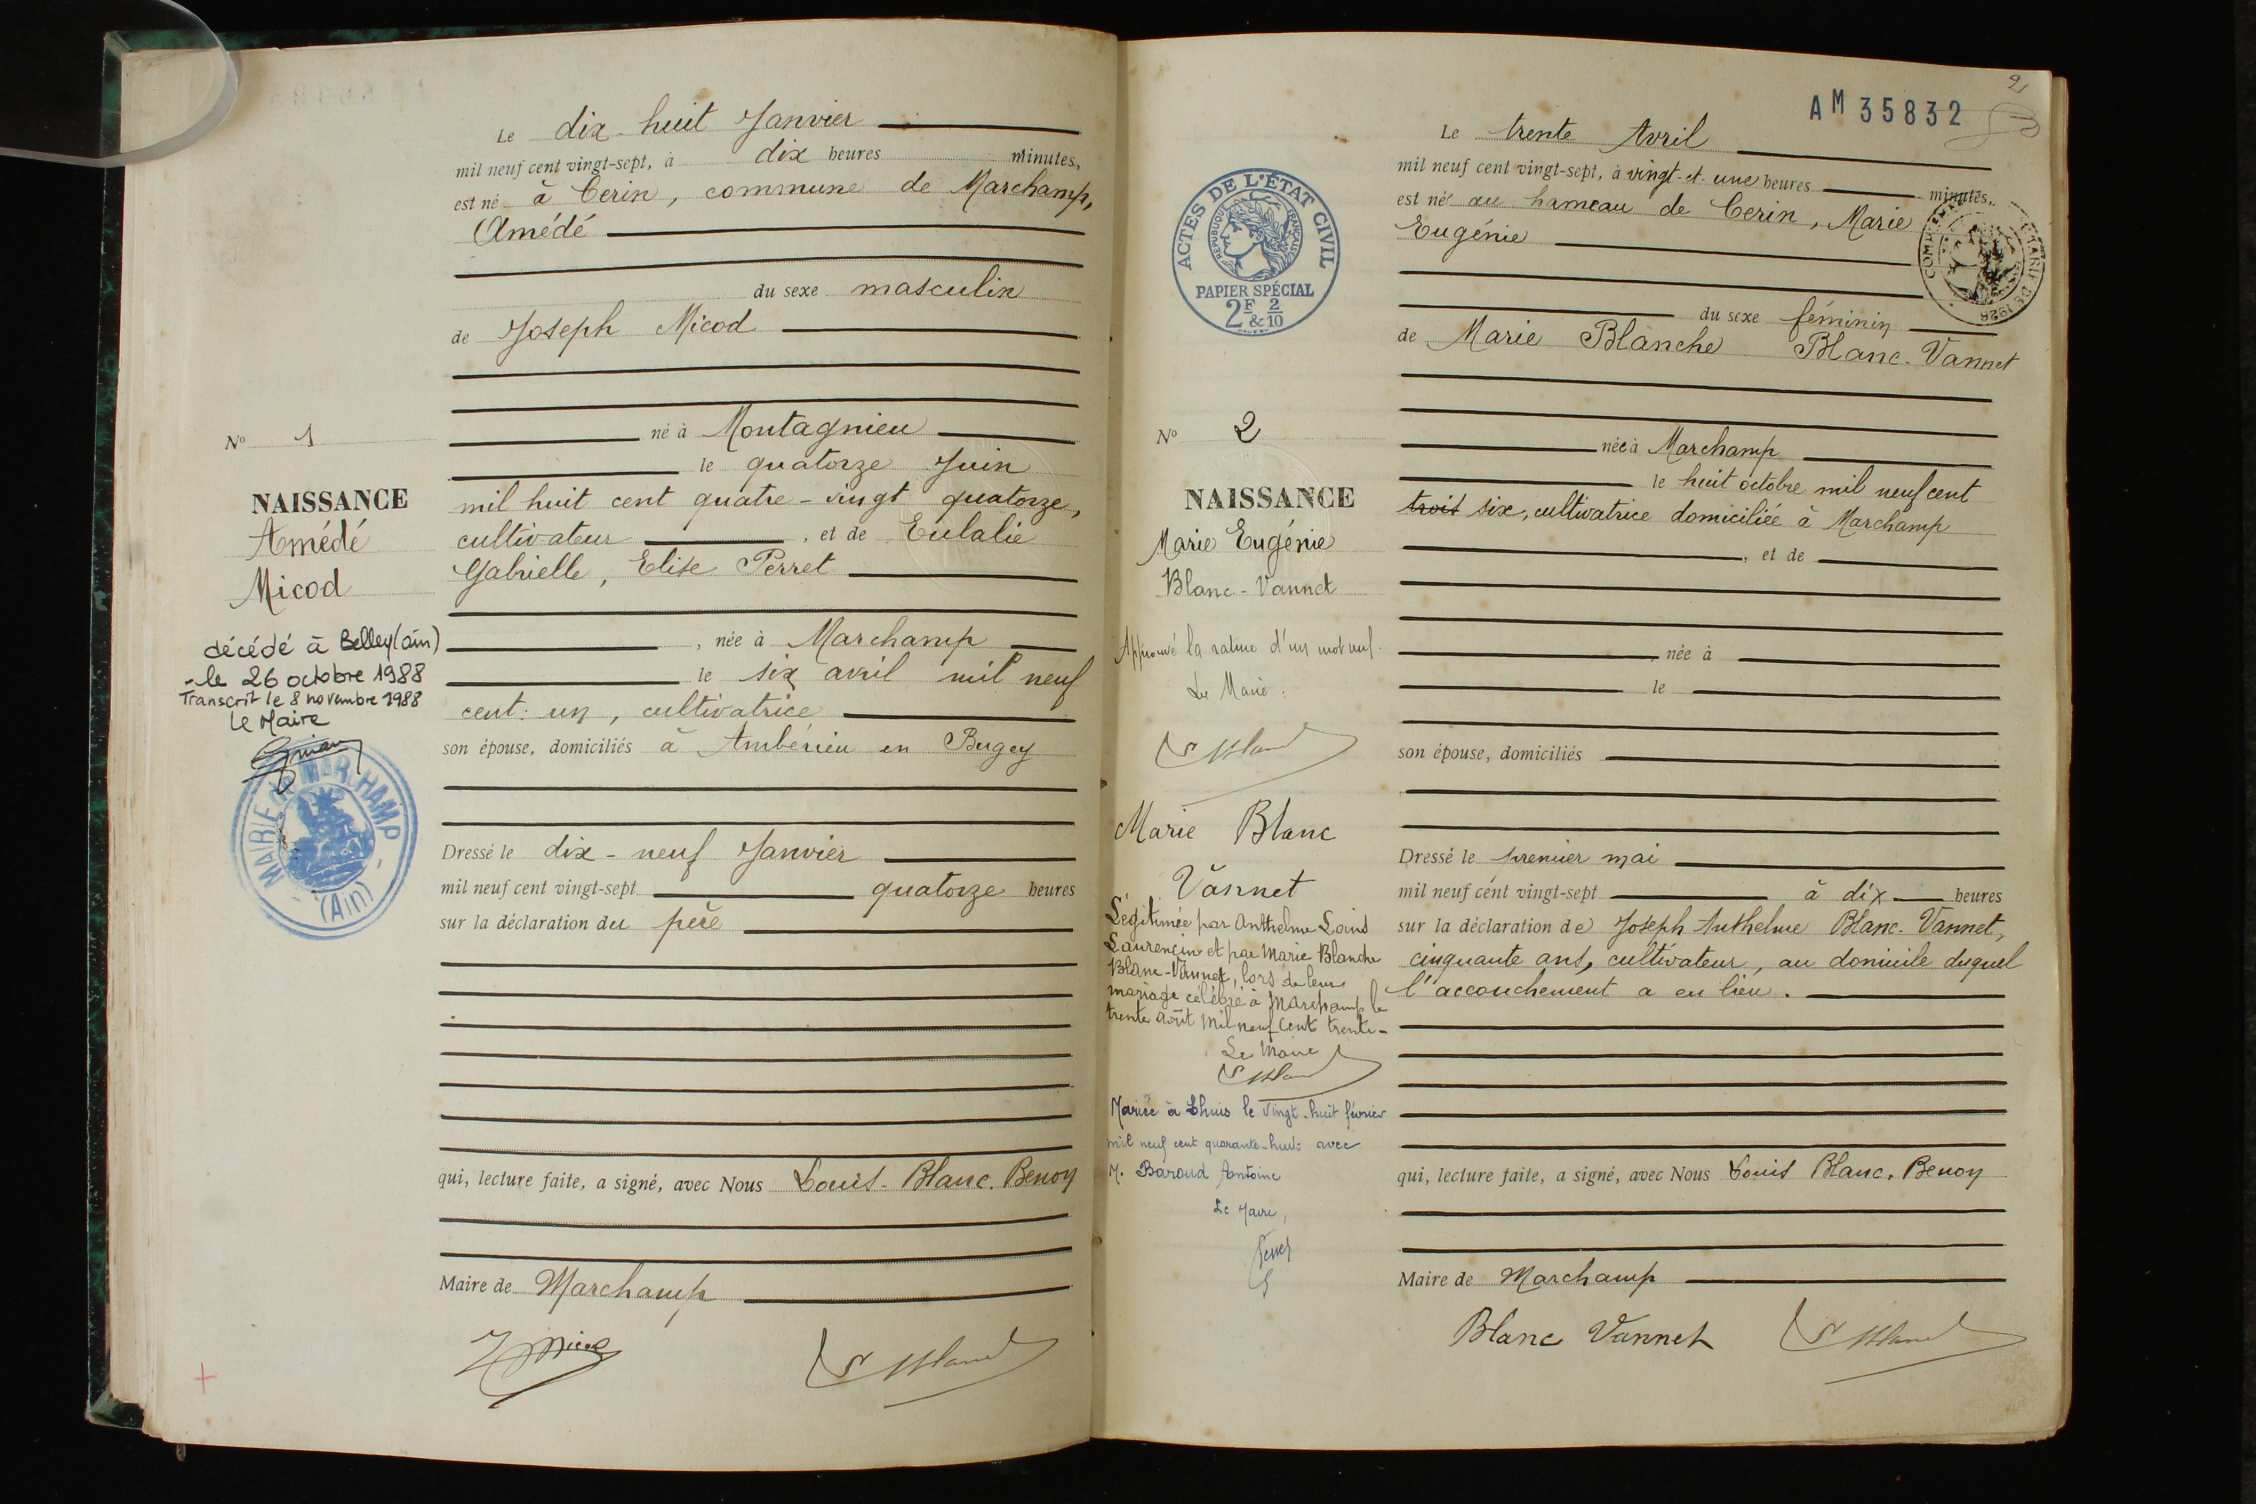 Le dix-huit Janvier
mil neuf cent vingt-sept, à dix heures minutes,
est né à Cerin, commune de Marchamp,
Amédé
du sexe masculin
de Joseph Micod
né à Montagnieu
le quatorze Juin
mil huit cent quatre-vingt quatorze,
cultivateur, et de Eulalie
Gabrielle, Elise Perret
, née à Marchamp
le six avril mil neuf
cent un, cultivatrice
son épouse, domiciliés à Ambérieu en Bugey
Dressé le dix-neuf Janvier
mil neuf cent vingt-sept quatorze heures
sur la déclaration du père
qui, lecture faite, a signé, avec Nous Louis Blanc. Benoy
Maire de Marchamp
Nº 1
NAISSANCE
Amédé
Micod
décédé à Belley (ain)
le 26 octobre 1988
Transcrit le 8 novembre 1988
Le Maire
MAIRIE DE MARCHAMP
(Ain)
AM 35832
2
Le trente Avril
mil neuf cent vingt-sept, à vingt-et-une heures minutes,
est né au hameau de Cerin, Marie
Eugénie
du sexe féminin
de Marie Blanche Blanc-Vannet
née à Marchamp
le huit octobre mil neuf cent
trois six, cultivatrice domiciliée à Marchamp
, et de
, née à
le
son épouse, domiciliés
Dressé le premier mai
mil neuf cent vingt-sept à dix heures
sur la déclaration de Joseph Anthelme Blanc-Vannet,
cinquante ans, cultivateur, au domicile duquel
l'accouchement a eu lieu.
qui, lecture faite, a signé, avec Nous Louis Blanc. Benoy
Maire de Marchamp
Blanc Vannet
ACTES DE L'ÉTAT CIVIL
RÉPUBLIQUE FRANÇAISE
PAPIER SPÉCIAL
2F & 2/10
Nº 2
NAISSANCE
Marie Eugénie
Blanc-Vannet
Approuvé la rature d'un mot nul.
Le Maire :
Marie Blanc
Vannet
Légitimée par Anthelme Louis
Laurencin et par Marie Blanche
Blanc-Vannet, lors de leur
mariage célébré à Marchamp le
trente août mil neuf cent trente-
Le Maire
Mariée à Lhuis le vingt-huit février
mil neuf cent quarante-huit avec
M. Baroud Antoine
Le Maire,